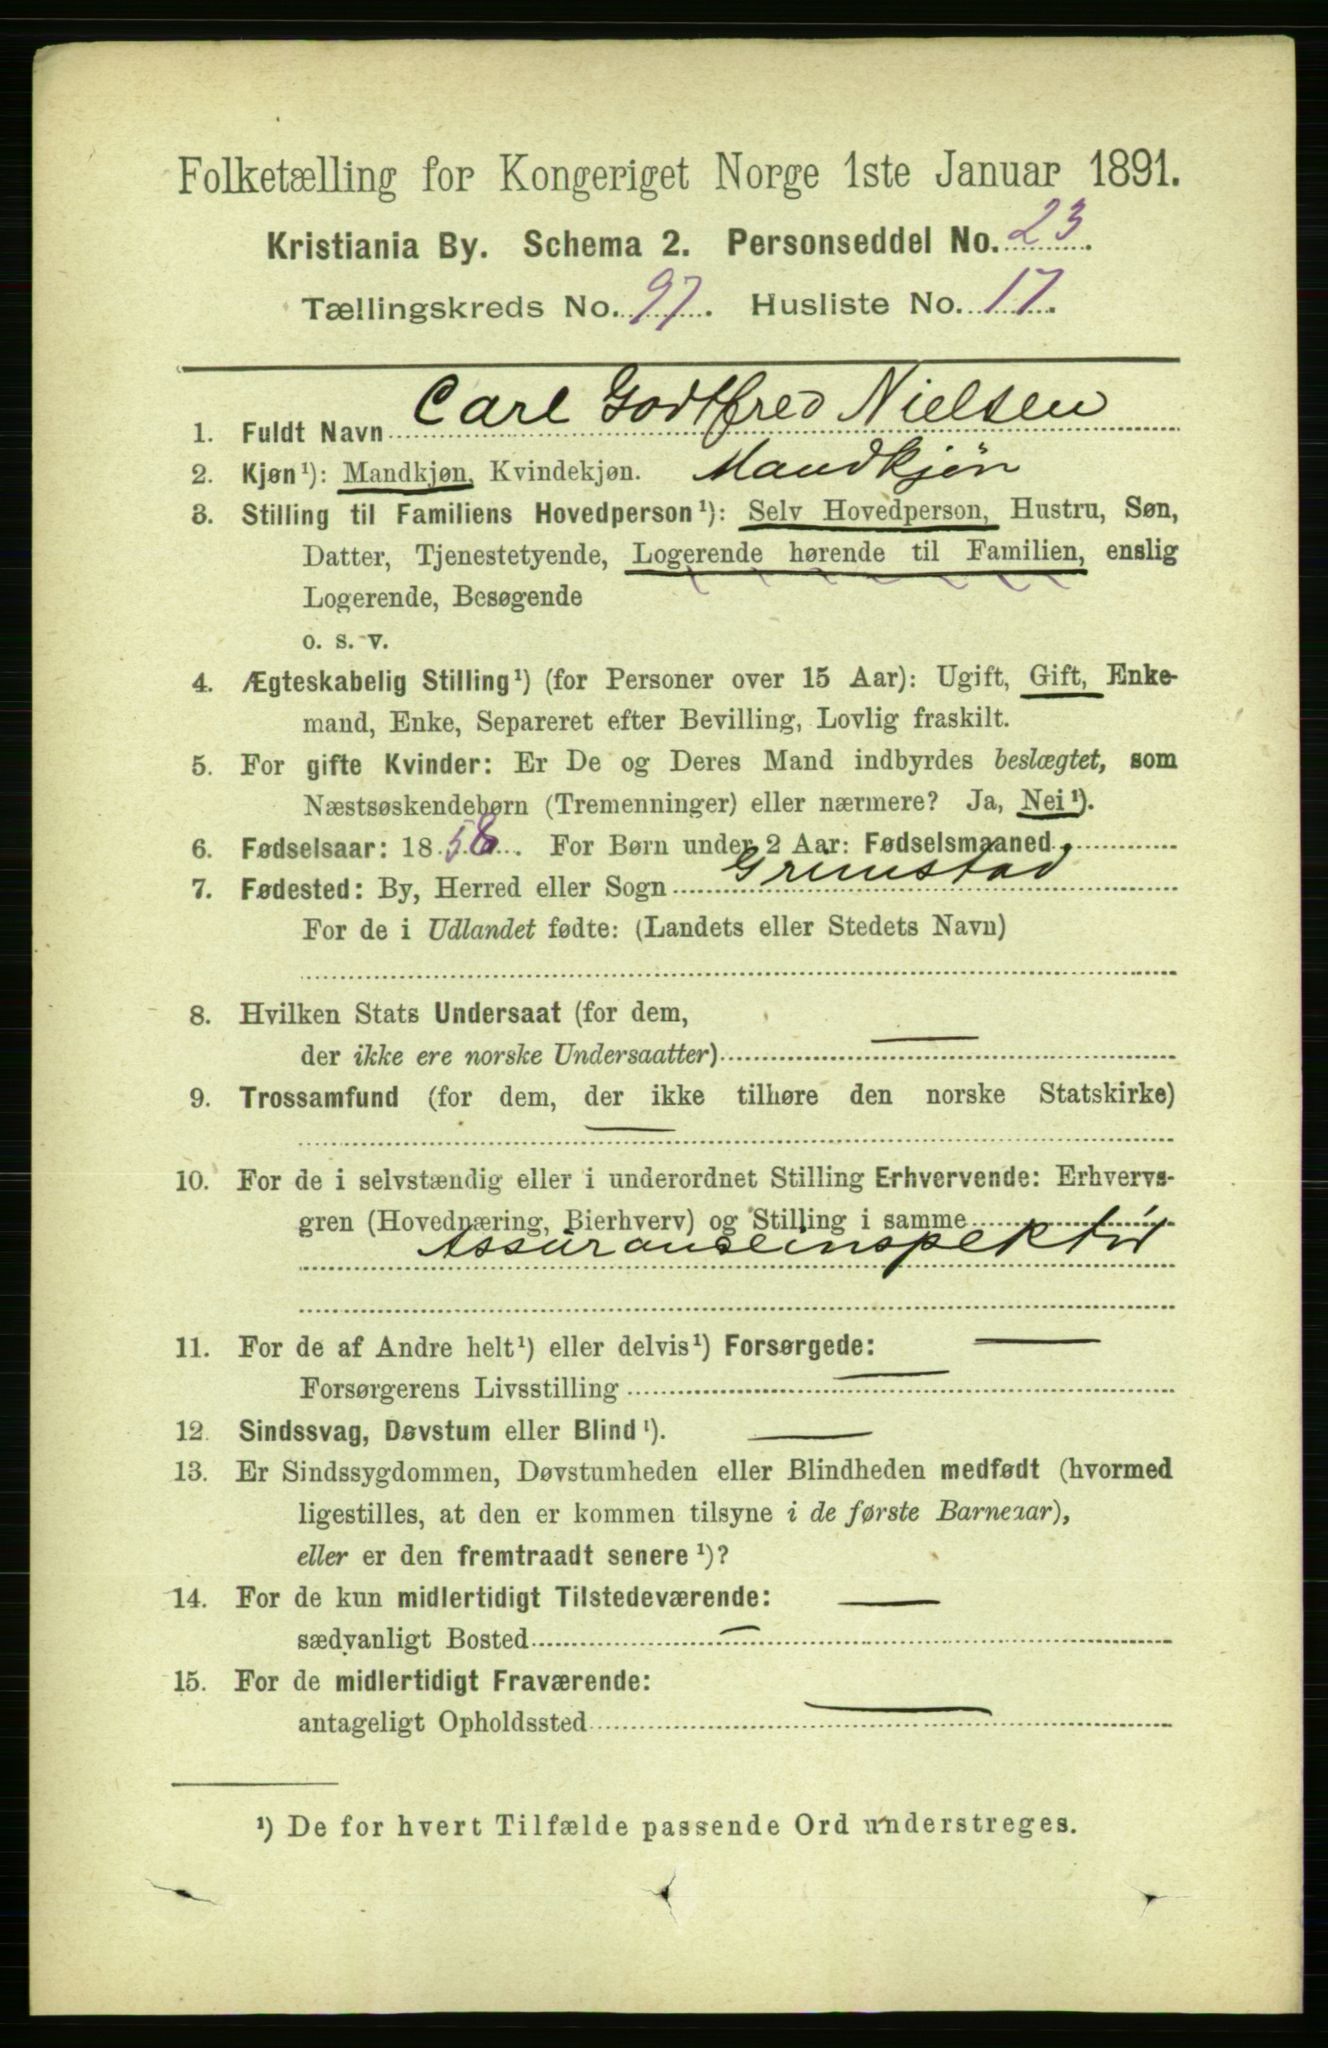 Folketælling for Kongeriget Norge 1ste Januar 1891.
Kristiania By. Schema 2. Personseddel No. 23.
Tællingskreds No. 97. Husliste No. 17.
1. Fuldt Navn Carl Godtfred Nielsen
2. Kjøn¹): Mandkjøn, Kvindekjøn. Mandkjøn
3. Stilling til Familiens Hovedperson¹): Selv Hovedperson, Hustru, Søn,
Datter, Tjenestetyende, Logerende hørende til Familien, enslig
Logerende, Besøgende
o. s. v.
4. Ægteskabelig Stilling¹) (for Personer over 15 Aar): Ugift, Gift, Enke-
mand, Enke, Separeret efter Bevilling, Lovlig fraskilt.
5. For gifte Kvinder: Er De og Deres Mand indbyrdes beslægtet, som
Næstsøskendebørn (Tremenninger) eller nærmere? Ja, Nei¹).
6. Fødselsaar: 1858. For Børn under 2 Aar: Fødselsmaaned
7. Fødested: By, Herred eller Sogn Grimstad
For de i Udlandet fødte: (Landets eller Stedets Navn)
8. Hvilken Stats Undersaat (for dem,
der ikke ere norske Undersaatter) —
9. Trossamfund (for dem, der ikke tilhøre den norske Statskirke)
—
10. For de i selvstændig eller i underordnet Stilling Erhvervende: Erhvervs-
gren (Hovednæring, Bierhverv) og Stilling i samme
Assuranseinspektør
11. For de af Andre helt¹) eller delvis¹) Forsørgede: —
Forsørgerens Livsstilling —
12. Sindssvag, Døvstum eller Blind¹). —
13. Er Sindssygdommen, Døvstumheden eller Blindheden medfødt (hvormed
ligestilles, at den er kommen tilsyne i de første Barneaar),
eller er den fremtraadt senere¹)?
14. For de kun midlertidigt Tilstedeværende: —
sædvanligt Bosted —
15. For de midlertidigt Fraværende:
antageligt Opholdssted —
¹) De for hvert Tilfælde passende Ord understreges.